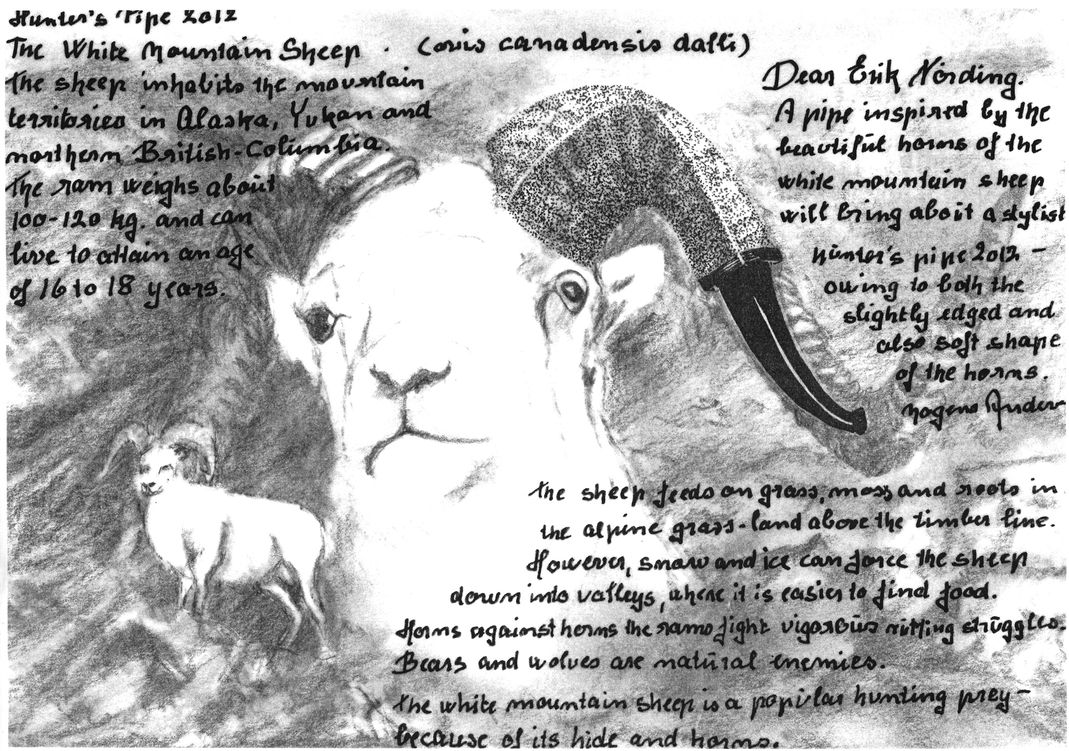 Hunter's Pipe 2012
The White Mountain Sheep. (ovis canadensis dalli)
The sheep inhabits the mountain
territories in Alaska, Yukan and
northern British-Columbia.
The ram weighs about
100-120 kg. and can
live to attain an age
of 16 to 18 years.
Dear Erik Nörding.
A pipe inspired by the
beautiful horns of the
white mountain sheep
will bring about a stylist
Hunter's pipe 2012 -
owing to both the
slightly edged and
also soft shape
of the horns.
Mogens Ander
the sheep feeds on grass, moss and roots in
the alpine grass-land above the timber line.
However, snow and ice can force the sheep
down into valleys, where it is easier to find food.
Horns against horns the rams fight vigorous rutting struggles.
Bears and wolves are natural enemies.
the white mountain sheep is a popular hunting prey -
because of its hide and horns.